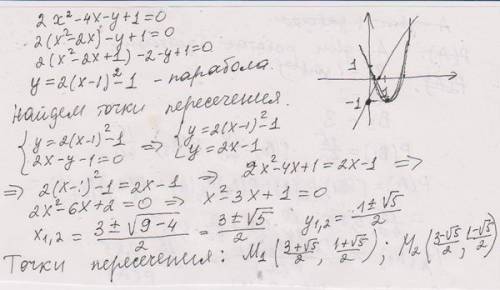 2x²-4x-y+1=0
2(x²-2x)-y+1=0
2(x²-2x+1)-2-y+1=0
y=2(x-1)²-1 - парабола.
1
-1
1
Найдем точки пересечения.
{y=2(x-1)²-1 => {y=2(x-1)²-1
{2x-y-1=0 {y=2x-1
=> 2(x-1)²-1=2x-1 => 2x²-4x+1=2x-1 =>
2x²-6x+2=0 => x²-3x+1=0
x₁,₂=(3±√(9-4))/2=(3±√5)/2 y₁,₂=(1±√5)/2
Точки пересечения: M₁((3+√5)/2, (1+√5)/2); M₂((3-√5)/2, (1-√5)/2)